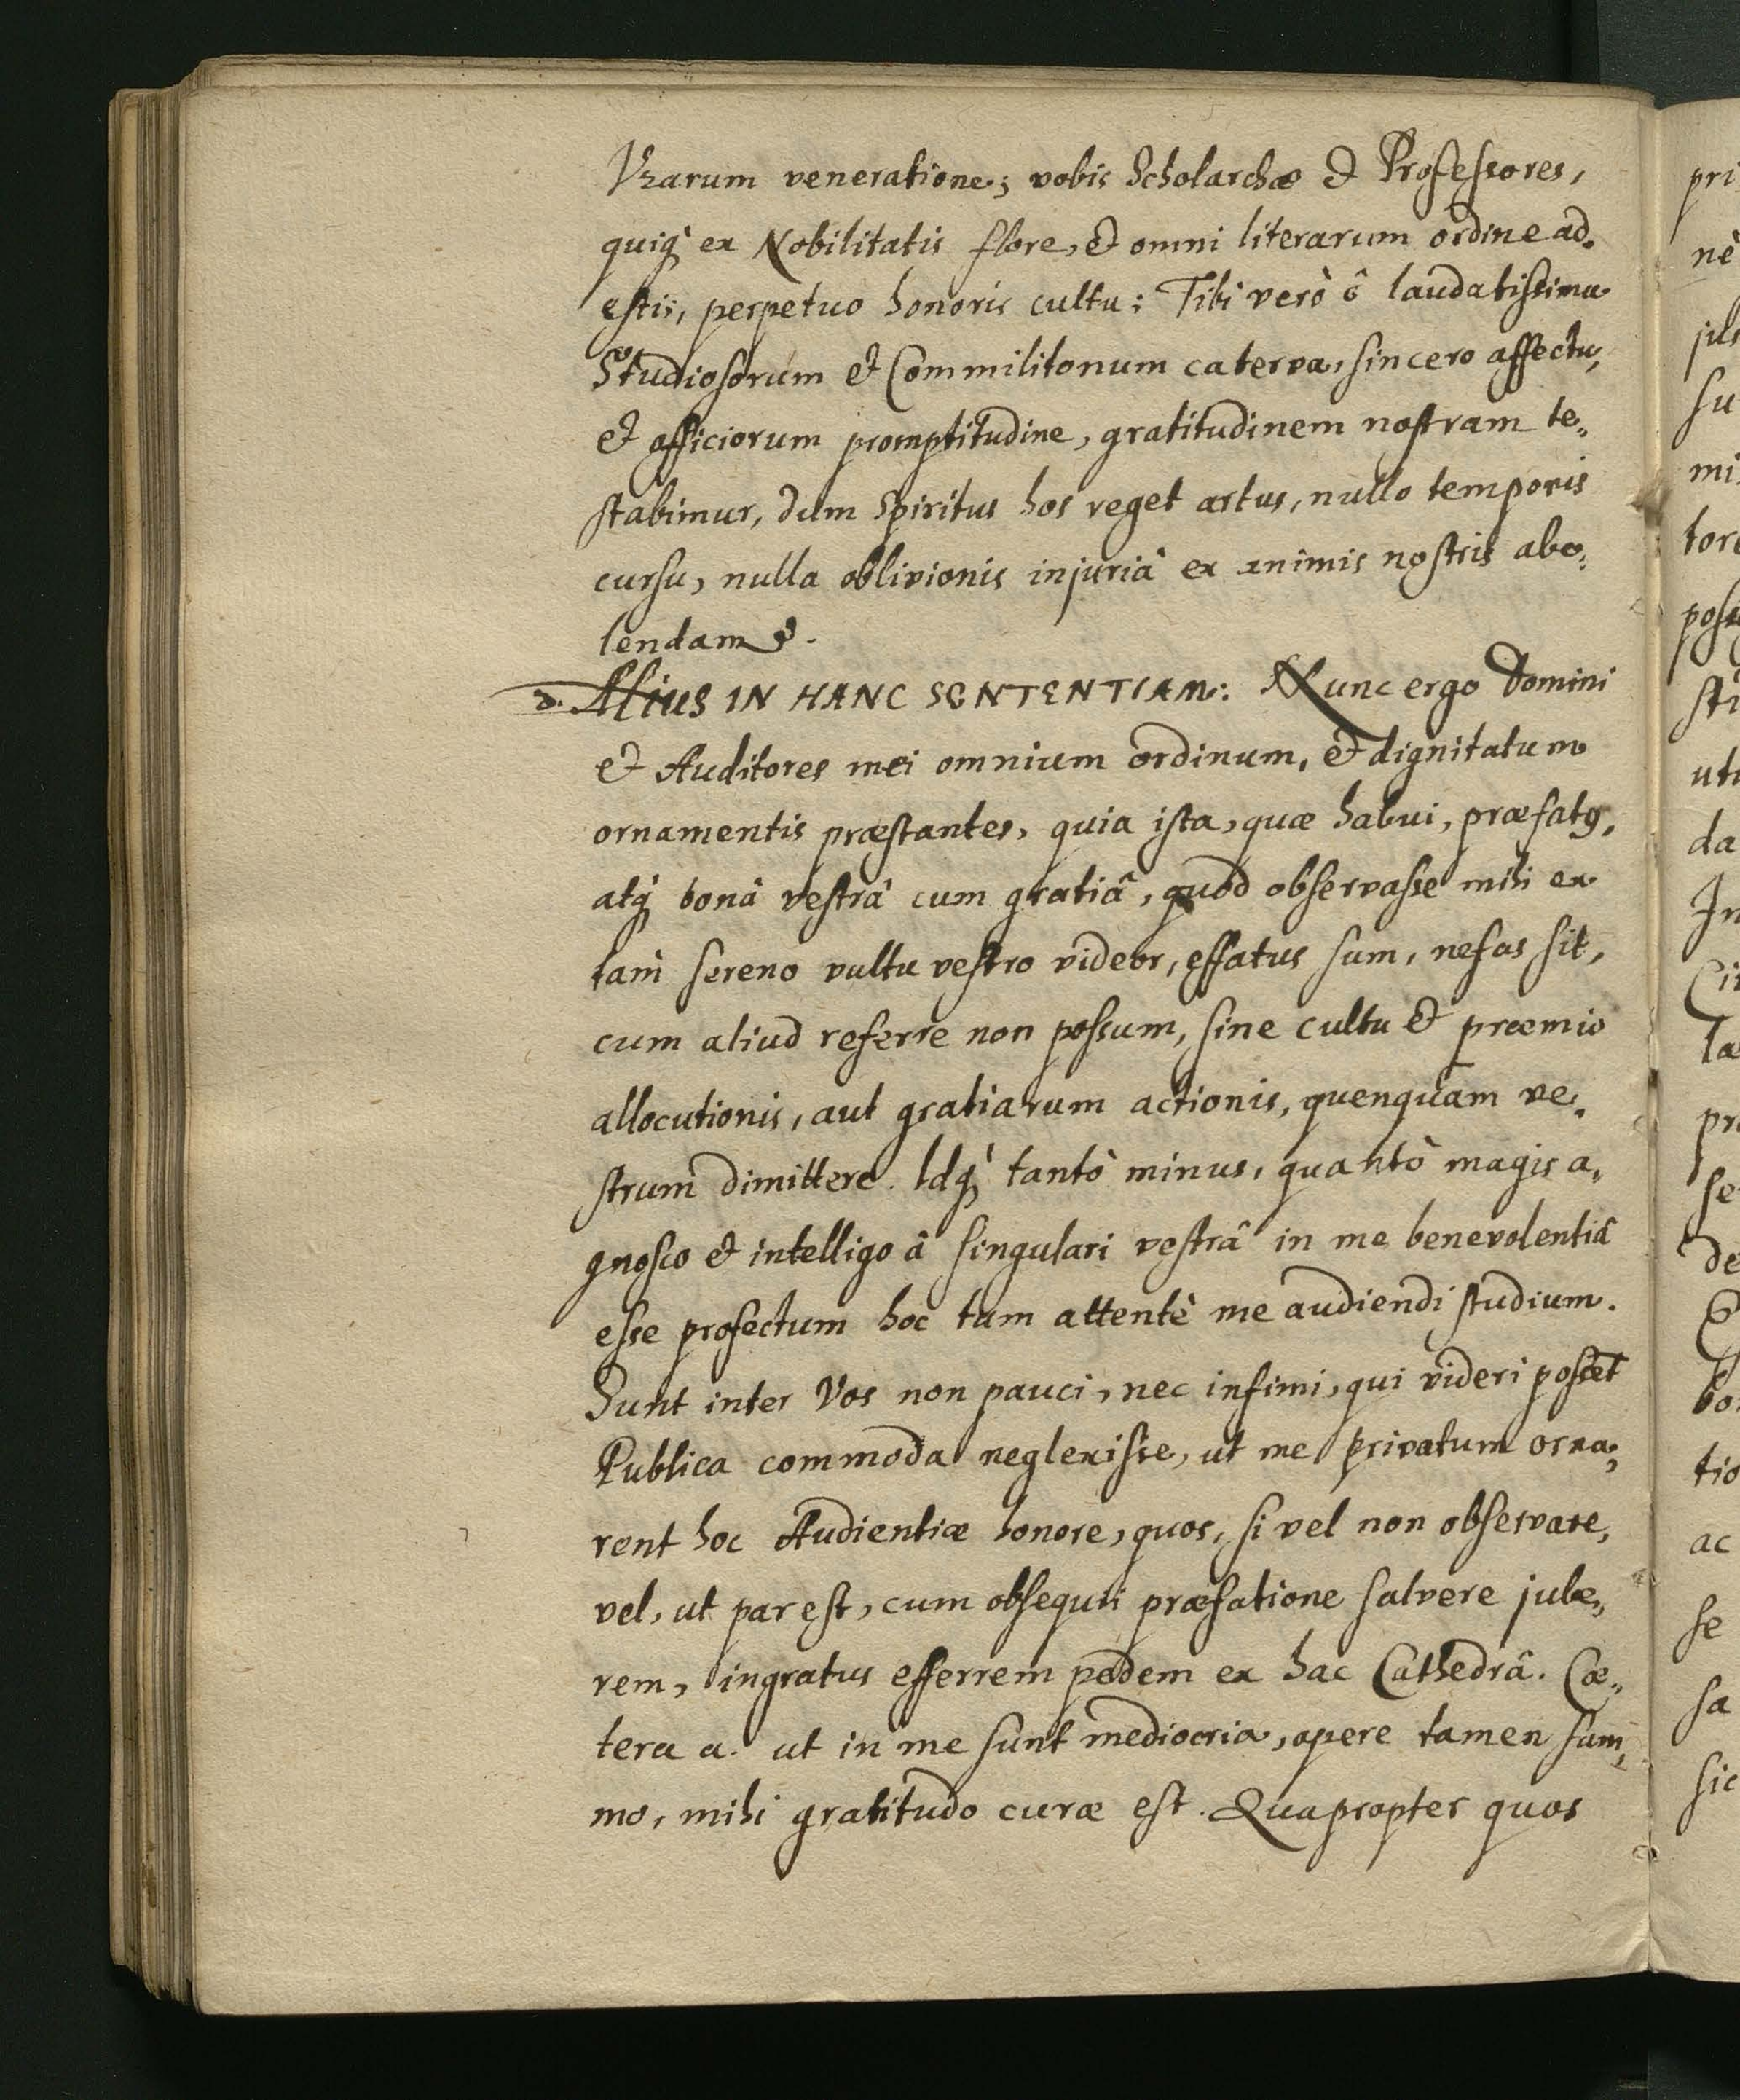 Vrarum veneratione; vobis Scholarchæ & Professores,
quiq; ex Nobilitatis flore, & omni literarum ordine ad-
estis, perpetuo honoris cultu: Tibi verò ô laudatissima
Studiosorum & Commilitonum caterva, sincero affectu,
& officiorum promptitudine, gratitudinem nostram te-
stabimur, dum Spiritus hos reget artus, nullo temporis
cursu, nulla oblivionis injuriâ ex animis nostris abo-
lendam.
2. Alius IN HANC SENTENTIAM: Nunc ergo Domini
& Auditores mei omnium ordinum, & dignitatum
ornamentis præstantes, quia ista, quæ habui, præfatus,
atq; bonâ vestrâ cum gratiâ, quod observasse mihi ex
tam sereno vultu vestro videor, effatus sum, nefas sit,
cum aliud referre non possum, sine cultu & præmio
allocutionis, aut gratiarum actionis, quenquam ve-
strum dimittere. Idq; tantò minus, quantò magis a-
gnosco & intelligo â singulari vestrâ in me benevolentiâ
esse profectum hoc tam attentè me audiendi studium.
Sunt inter Vos non pauci, nec infimi, qui videri possēt
Publica commoda neglexisse, ut me privatum orna-
rent hoc Audientiæ honore, quos, si vel non observare,
vel, ut par est, cum obsequii præfatione salvere jube-
rem, ingratus efferrem pedem ex hac Cathedrâ. Cæ-
tera a. ut in me sunt mediocria, opere tamen sum-
mo, mihi gratitudo curæ est. Quapropter quos
pri
nè
su
mi
tor
ut
da
In
la
pr
se
de
bo
tio
ac
se
sa
sic